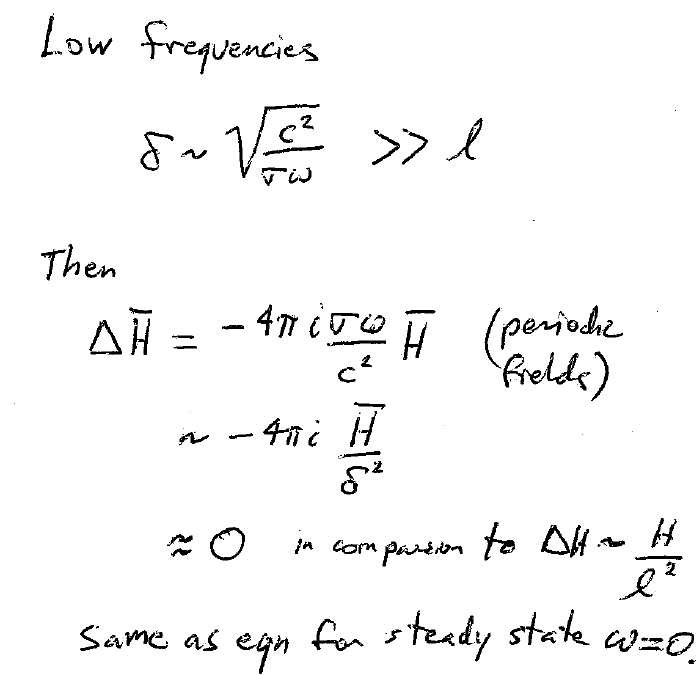 Low frequencies
δ ~ √(c²/σω) >> l
Then
ΔH̄ = -4πi σω/c² H̄ (periodic
fields)
~ -4πi H̄/δ²
≈ 0 in comparison to ΔH ~ H/l²
Same as eqn for steady state ω=0.